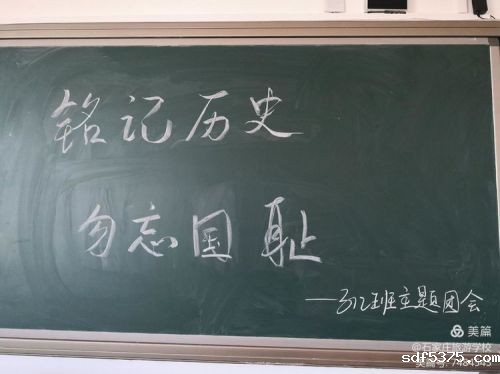 铭记历史
勿忘国耻
—312班主题团会
美篇
@石家庄旅游学校
sdf5375.com